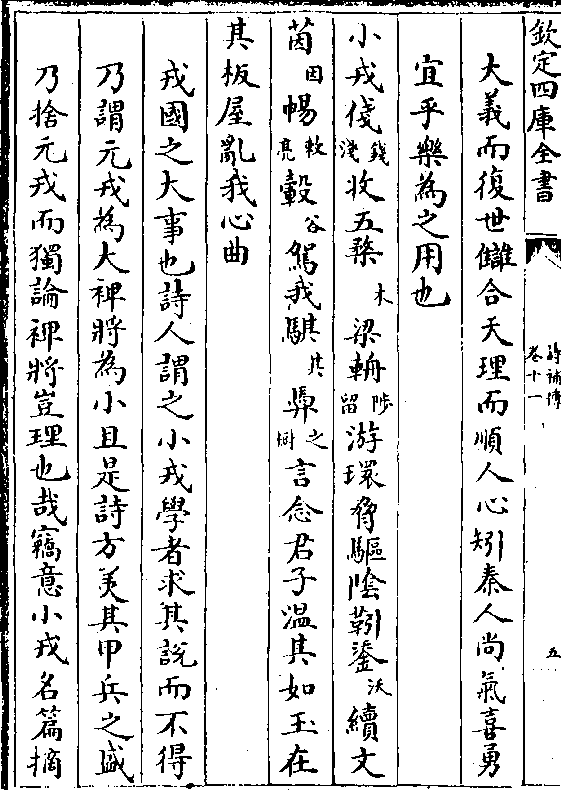 欽定四庫全書
詩補傳
卷十一
五
大義而復世讎合天理而順人心矧秦人尚氣喜勇
宜乎樂為之用也
小戎俴錢淺收五楘木梁輈陟留游環脅驅陰靷鋈沃續文
茵因暢敕亮轂谷駕我騏其馵之樹言念君子溫其如玉在
其板屋亂我心曲
戎國之大事也詩人謂之小戎學者求其說而不得
乃謂元戎為大裨將為小且是詩方美其甲兵之盛
乃捨元戎而獨論裨將豈理也哉竊意小戎名篇摘